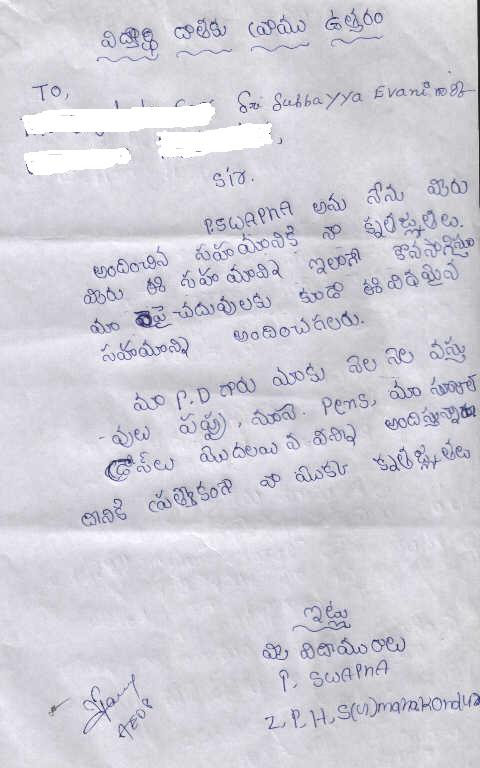 విద్యార్థి దాతకు వ్రాయు ఉత్తరం
TO,
Sri Subbayya Evani గారికి
Sir.
P.SWAPNA అను నేను మీరు
అందించిన సహాయానికి నా కృతజ్ఞతలు.
మీరు ఈ సహాయాన్ని ఇలాగే కొనసాగిస్తూ
మా పై చదువులకు కూడా ఈ విధమైన
సహయాన్ని అందించగలరు.
మా P.D గారు మాకు నెల నెల వస్తు
-వులు పప్పు, నూనె. Pens, మా స్కూల్
డ్రస్‌లు మొదలయి వ వన్ని అందిస్తున్నారు
దానికి ప్రత్యేకంగా నా యొక్క కృతజ్ఞతలు
ఇట్లు
మీ విద్యార్థురాలు
P. SWAPNA
Z.P.H.S(G) manakondur